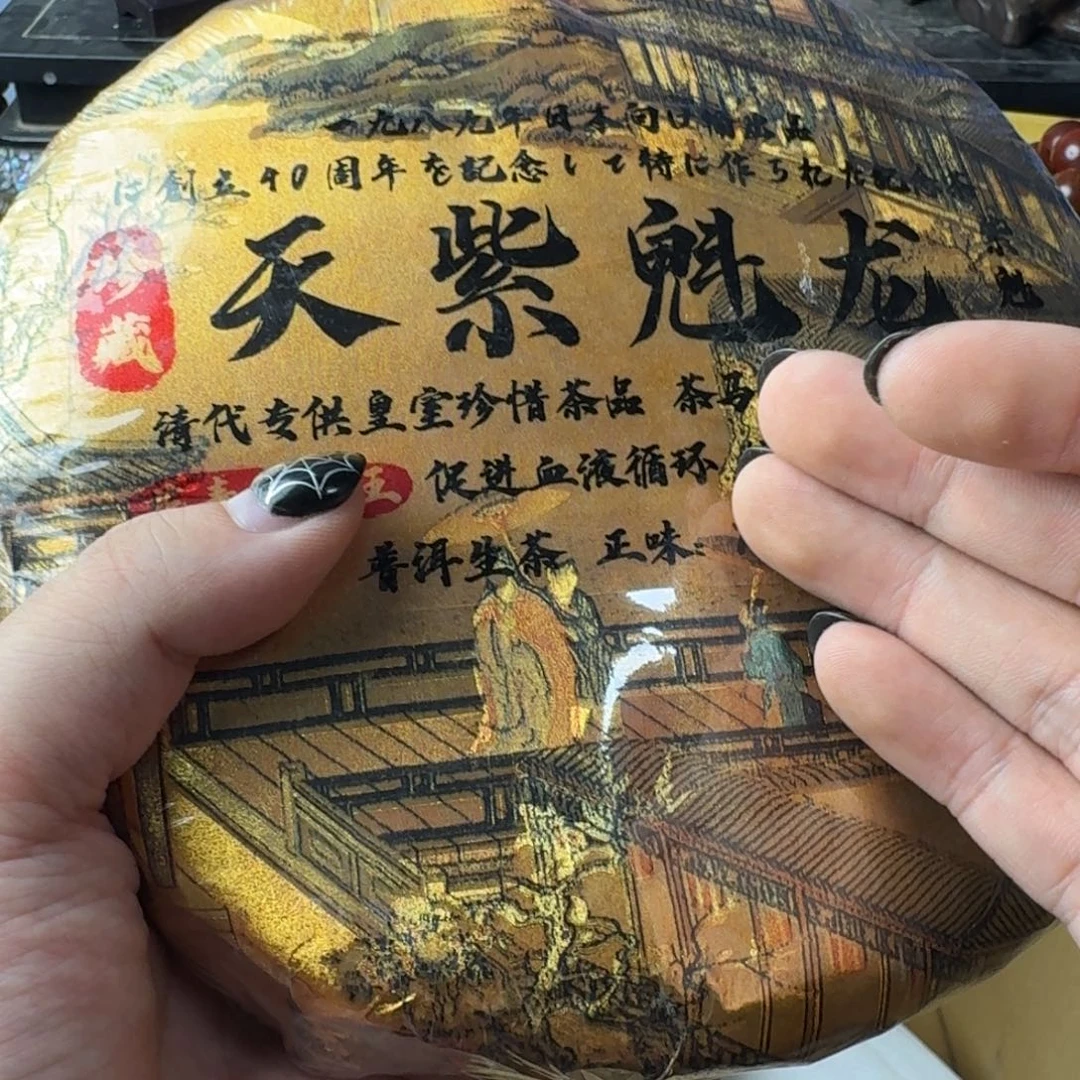 一九八九年日本向け輸出品
は創立40周年を記念して特に作られた記念茶
天紫魁龙
珍藏
清代专供皇室珍惜茶品 茶马
王 促进血液循环
普洱生茶 正味: